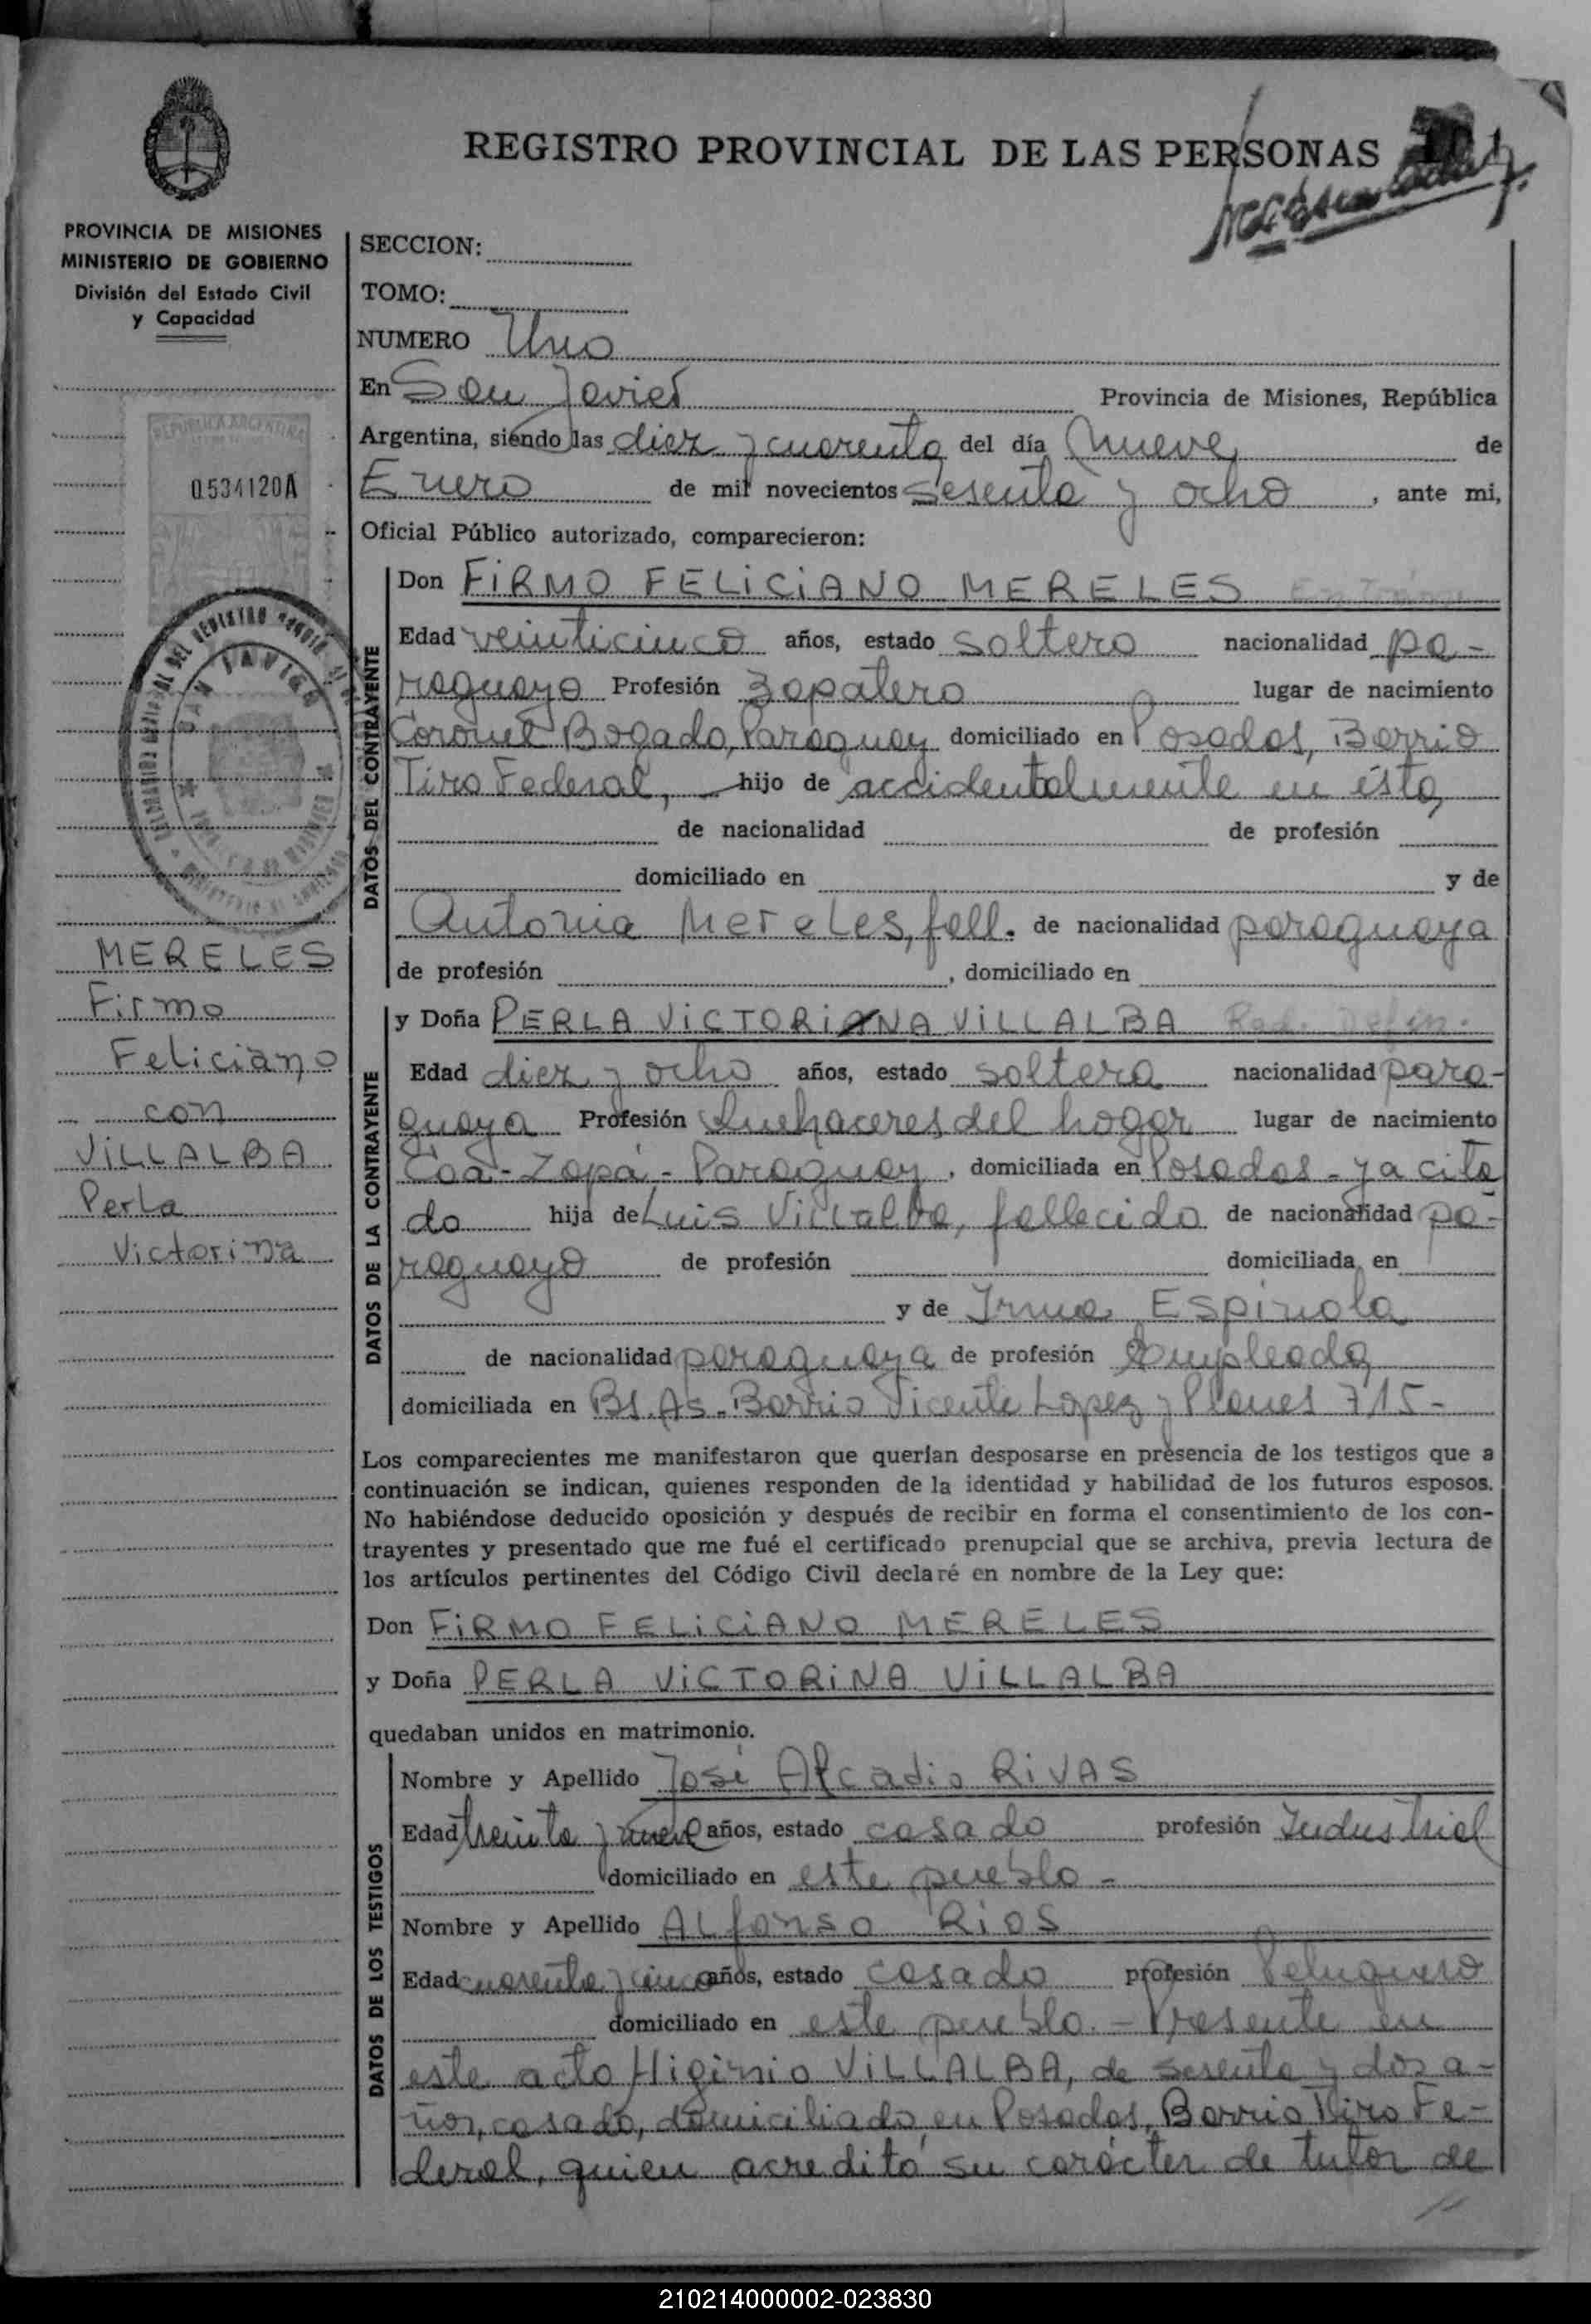 REGISTRO PROVINCIAL DE LAS PERSONAS
PROVINCIA DE MISIONES
MINISTERIO DE GOBIERNO
División del Estado Civil
y Capacidad
REPUBLICA ARGENTINA
0534120A
SAN JAVIER
MERELES
Firmo
Feliciano
con
VILLALBA
Perla
Victorina
SECCION:
TOMO:
NUMERO Uno
En San Javier Provincia de Misiones, República
Argentina, siendo las diez y cuarenta del día nueve de
Enero de mil novecientos sesenta y ocho, ante mi,
Oficial Público autorizado, comparecieron:
DATOS DEL CONTRAYENTE
Don FIRMO FELICIANO MERELES
Edad veinticinco años, estado soltero nacionalidad pa-
raguayo Profesión Zapatero lugar de nacimiento
Coronel Bogado, Paraguay domiciliado en Posadas, Barrio
Tiro Federal, hijo de accidentalmente en ésta
de nacionalidad de profesión
domiciliado en y de
Antonia Mereles, fall. de nacionalidad paraguaya
de profesión , domiciliado en
DATOS DE LA CONTRAYENTE
y Doña PERLA VICTORINA VILLALBA
Edad diez y ocho años, estado soltera nacionalidad para-
guaya Profesión Quehaceres del hogar lugar de nacimiento
Caa-Zapá-Paraguay, domiciliada en Posadas-ya cita
do hija de Luis Villalba, fallecido de nacionalidad pa-
raguayo de profesión domiciliada en
y de Irma Espinola
de nacionalidad paraguaya de profesión Empleada
domiciliada en Bs.As.-Barrio Vicente Lopez y Planes 715-
Los comparecientes me manifestaron que querían desposarse en presencia de los testigos que a
continuación se indican, quienes responden de la identidad y habilidad de los futuros esposos.
No habiéndose deducido oposición y después de recibir en forma el consentimiento de los con-
trayentes y presentado que me fué el certificado prenupcial que se archiva, previa lectura de
los artículos pertinentes del Código Civil declaré en nombre de la Ley que:
Don FIRMO FELICIANO MERELES
y Doña PERLA VICTORINA VILLALBA
quedaban unidos en matrimonio.
DATOS DE LOS TESTIGOS
Nombre y Apellido José Alcadio RIVAS
Edad treinta y nueve años, estado casado profesión Industrial
domiciliado en este pueblo-
Nombre y Apellido Alfonso RIOS
Edad cuarenta y cinco años, estado casado profesión Peluquero
domiciliado en este pueblo.- Presente en
este acto Higinio VILLALBA, de sesenta y dos a-
ños, casado, domiciliado en Posadas, Barrio Tiro Fe-
deral, quien acreditó su carácter de tutor de
210214000002-023830